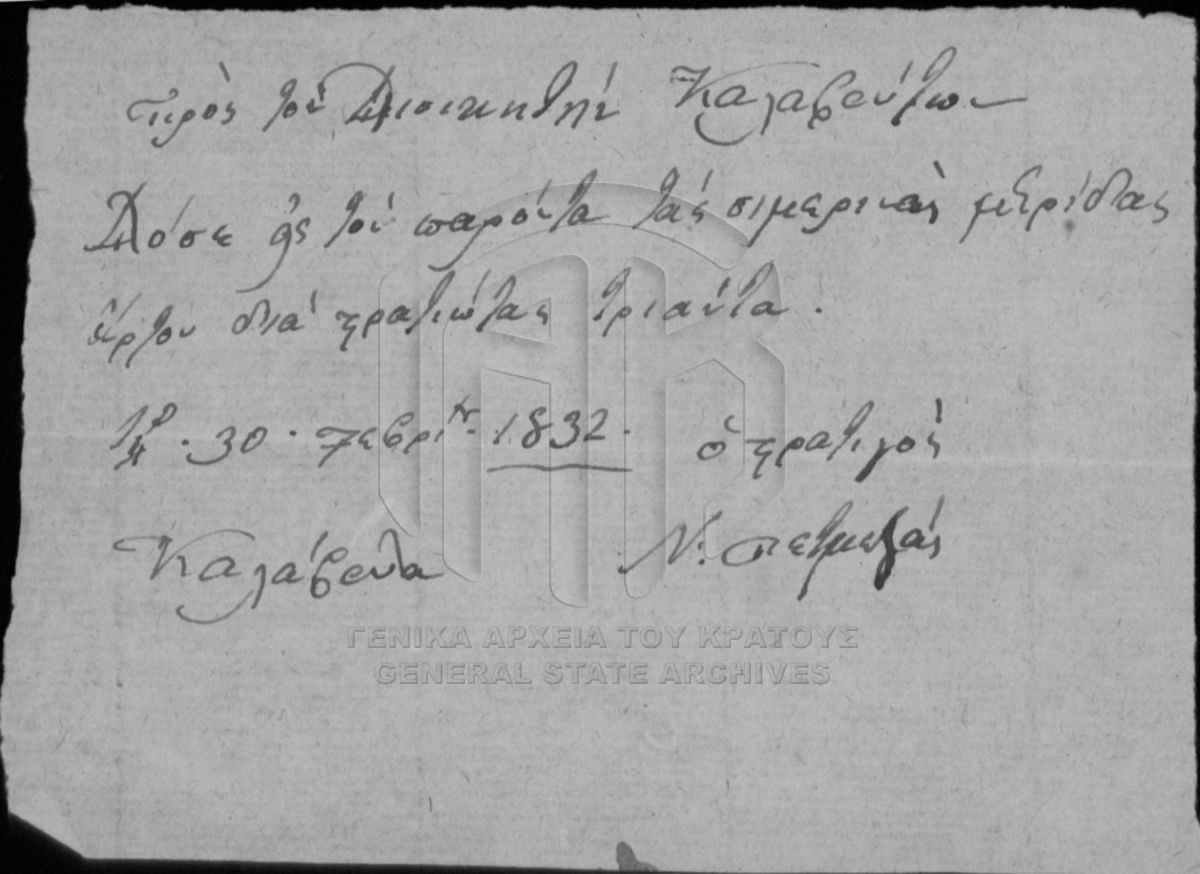 Πρὸς τὸν Διοικητὴν Καλαβρύτων
Δόσε εἰς τὸν παρόντα τὰς σιμερινὰς μερίδας
ἄρτου διὰ στρατιώτας τριάντα.
30 · 1832 · ὁ στρατιγὸς
Καλάβρυτα Ν. Πετμεζάς
ΓΕΝΙΚΑ ΑΡΧΕΙΑ ΤΟΥ ΚΡΑΤΟΥΣ
GENERAL STATE ARCHIVES